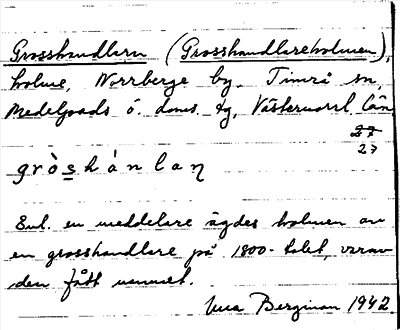 Grosshandlarn (Grosshandlareholmen),
holme, Norrberge by, Timrå sn,
Medelpads ö. doms. tg, Västernorrl. län.
27
27
gròshánlaṇ
Enl. en meddelare ägdes holmen av
en grosshandlare på 1800-talet, varav
den fått namnet.
Bergman 1942.